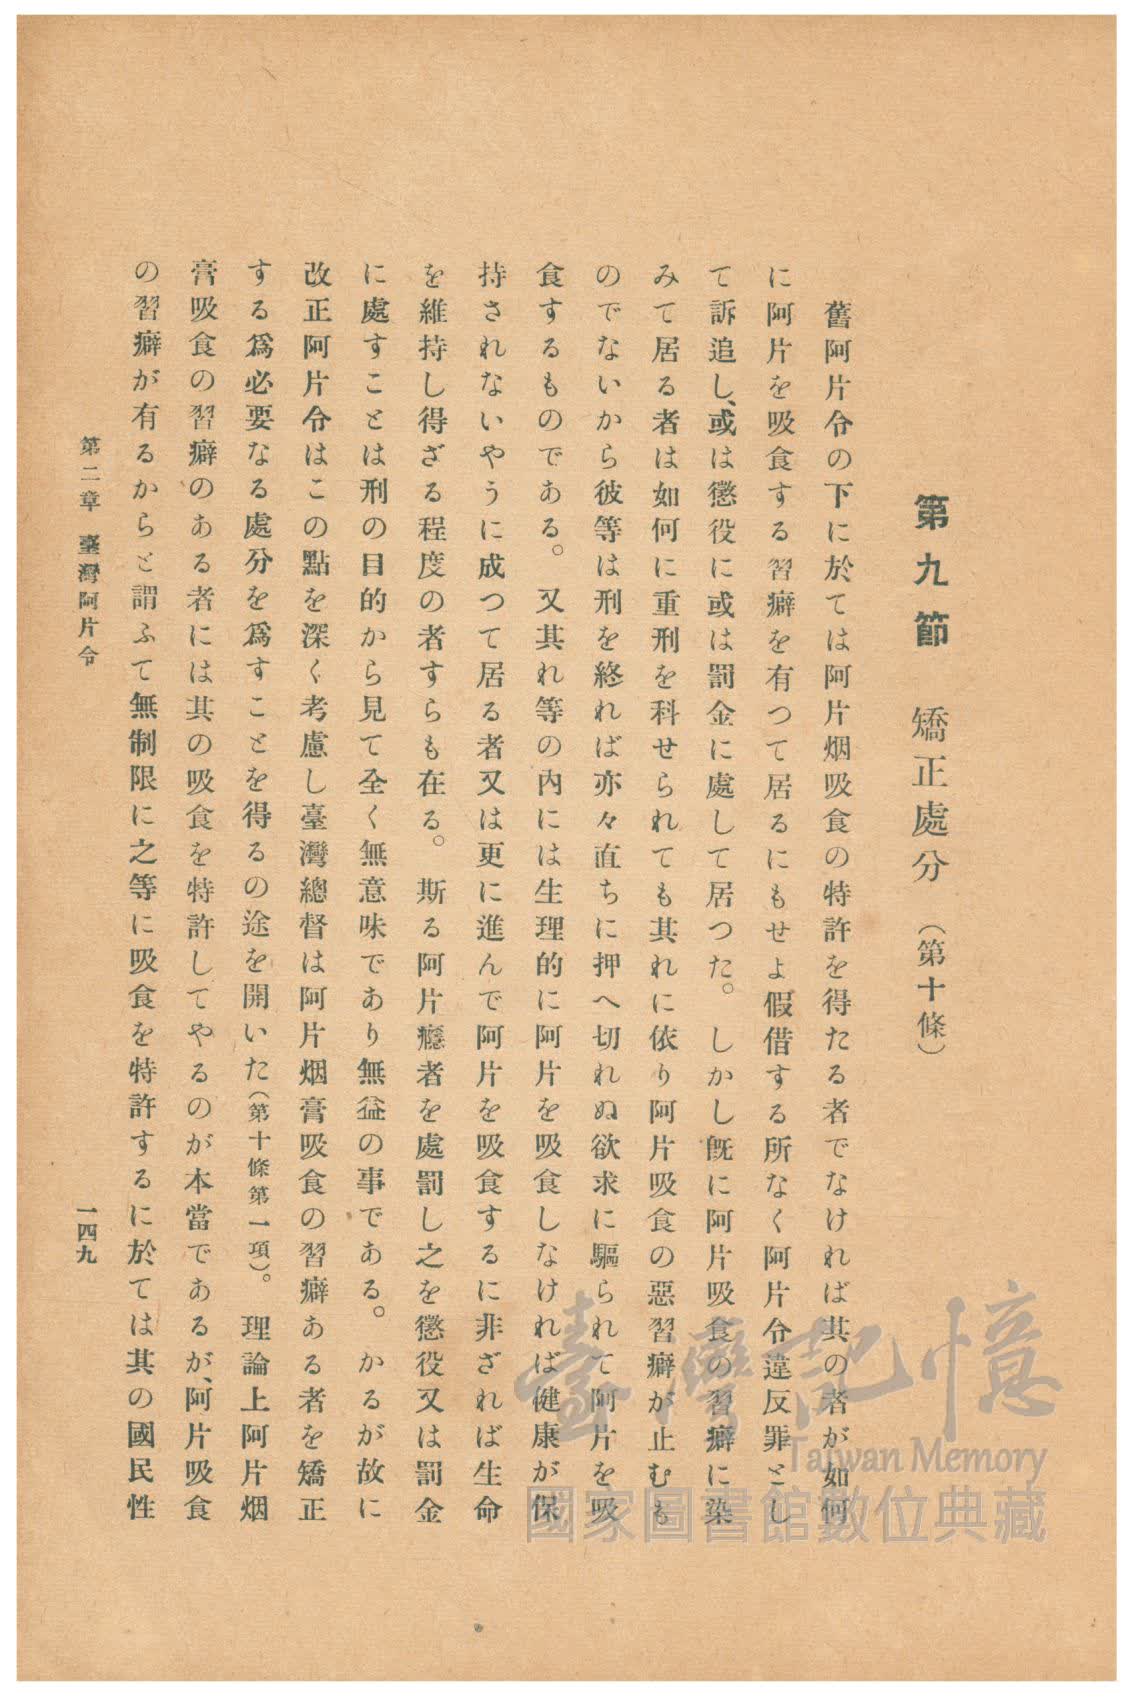 第九節　矯正處分　（第十條）
舊阿片令の下に於ては阿片烟吸食の特許を得たる者でなければ其の者が如何
に阿片を吸食する習癖を有つて居るにもせよ假借する所なく阿片令違反罪とし
て訴追し、或は懲役に或は罰金に處して居つた。しかし旣に阿片吸食の習癖に染
みて居る者は如何に重刑を科せられても其れに依り阿片吸食の惡習癖が止むも
のでないから彼等は刑を終れば亦々直ちに押へ切れぬ欲求に驅られて阿片を吸
食するものである。又其れ等の內には生理的に阿片を吸食しなければ健康が保
持されないやうに成つて居る者又は更に進んで阿片を吸食するに非ざれば生命
を維持し得ざる程度の者すらも在る。斯る阿片癮者を處罰し之を懲役又は罰金
に處すことは刑の目的から見て全く無意味であり無益の事である。かるが故に
改正阿片令はこの點を深く考慮し臺灣總督は阿片烟膏吸食の習癖ある者を矯正
する爲必要なる處分を爲すことを得るの途を開いた（第十條第一項）。理論上阿片烟
膏吸食の習癖のある者には其の吸食を特許してやるのが本當であるが、阿片吸食
の習癖が有るからと謂ふて無制限に之等に吸食を特許するに於ては其の國民性
第二章　臺灣阿片令
一四九
臺灣記憶
Taiwan Memory
國家圖書館數位典藏